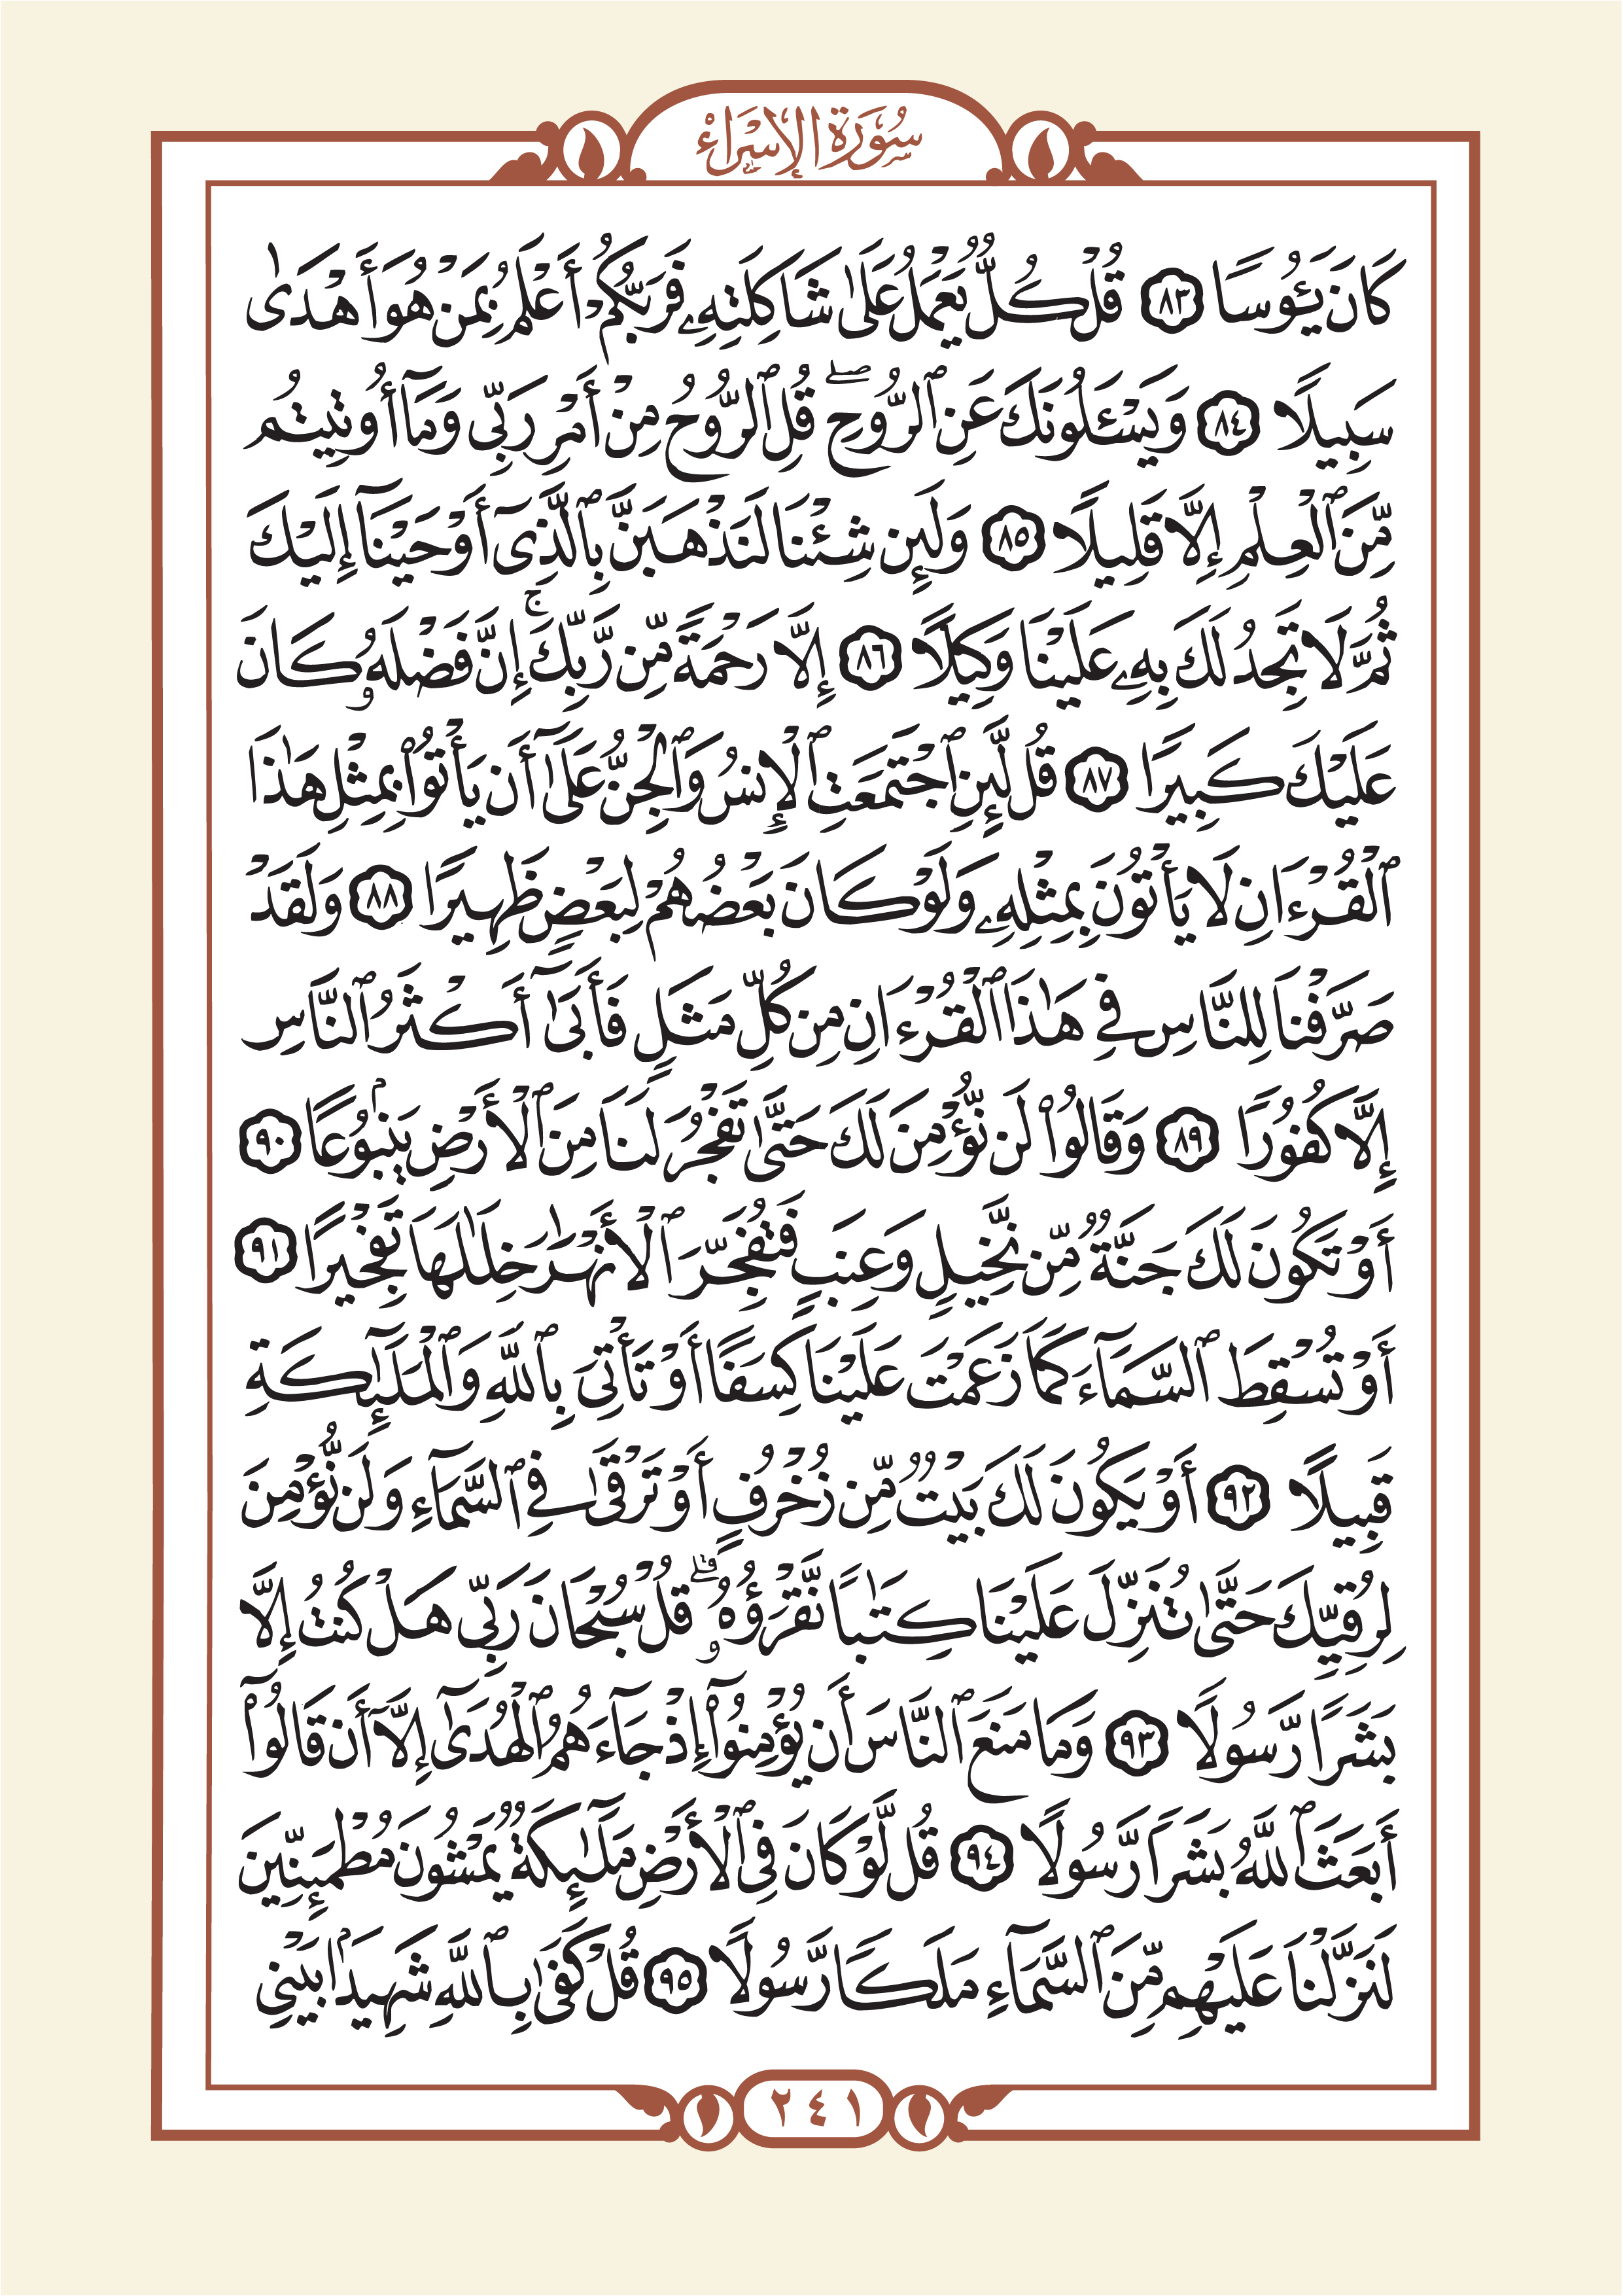 سُورَةُ الإِسْرَاءِ
كَانَ يَـُٔوسًا ٨٣ قُلْ كُلٌّ يَعْمَلُ عَلَىٰ شَاكِلَتِهِۦ فَرَبُّكُمْ أَعْلَمُ بِمَنْ هُوَ أَهْدَىٰ
سَبِيلًا ٨٤ وَيَسْـَٔلُونَكَ عَنِ ٱلرُّوحِۖ قُلِ ٱلرُّوحُ مِنْ أَمْرِ رَبِّى وَمَآ أُوتِيتُم
مِّنَ ٱلْعِلْمِ إِلَّا قَلِيلًا ٨٥ وَلَئِن شِئْنَا لَنَذْهَبَنَّ بِٱلَّذِىٓ أَوْحَيْنَآ إِلَيْكَ
ثُمَّ لَا تَجِدُ لَكَ بِهِۦ عَلَيْنَا وَكِيلًا ٨٦ إِلَّا رَحْمَةً مِّن رَّبِّكَۚ إِنَّ فَضْلَهُۥ كَانَ
عَلَيْكَ كَبِيرًا ٨٧ قُل لَّئِنِ ٱجْتَمَعَتِ ٱلْإِنسُ وَٱلْجِنُّ عَلَىٰٓ أَن يَأْتُوا۟ بِمِثْلِ هَـٰذَا
ٱلْقُرْءَانِ لَا يَأْتُونَ بِمِثْلِهِۦ وَلَوْ كَانَ بَعْضُهُمْ لِبَعْضٍ ظَهِيرًا ٨٨ وَلَقَدْ
صَرَّفْنَا لِلنَّاسِ فِى هَـٰذَا ٱلْقُرْءَانِ مِن كُلِّ مَثَلٍ فَأَبَىٰٓ أَكْثَرُ ٱلنَّاسِ
إِلَّا كُفُورًا ٨٩ وَقَالُوا۟ لَن نُّؤْمِنَ لَكَ حَتَّىٰ تَفْجُرَ لَنَا مِنَ ٱلْأَرْضِ يَنۢبُوعًا ٩٠
أَوْ تَكُونَ لَكَ جَنَّةٌ مِّن نَّخِيلٍ وَعِنَبٍ فَتُفَجِّرَ ٱلْأَنْهَـٰرَ خِلَـٰلَهَا تَفْجِيرًا ٩١
أَوْ تُسْقِطَ ٱلسَّمَآءَ كَمَا زَعَمْتَ عَلَيْنَا كِسَفًا أَوْ تَأْتِىَ بِٱللَّهِ وَٱلْمَلَـٰٓئِكَةِ
قَبِيلًا ٩٢ أَوْ يَكُونَ لَكَ بَيْتٌ مِّن زُخْرُفٍ أَوْ تَرْقَىٰ فِى ٱلسَّمَآءِ وَلَن نُّؤْمِنَ
لِرُقِيِّكَ حَتَّىٰ تُنَزِّلَ عَلَيْنَا كِتَـٰبًا نَّقْرَؤُهُۥۗ قُلْ سُبْحَانَ رَبِّى هَلْ كُنتُ إِلَّا
بَشَرًا رَّسُولًا ٩٣ وَمَا مَنَعَ ٱلنَّاسَ أَن يُؤْمِنُوٓا۟ إِذْ جَآءَهُمُ ٱلْهُدَىٰٓ إِلَّآ أَن قَالُوٓا۟
أَبَعَثَ ٱللَّهُ بَشَرًا رَّسُولًا ٩٤ قُل لَّوْ كَانَ فِى ٱلْأَرْضِ مَلَـٰٓئِكَةٌ يَمْشُونَ مُطْمَئِنِّينَ
لَنَزَّلْنَا عَلَيْهِم مِّنَ ٱلسَّمَآءِ مَلَكًا رَّسُولًا ٩٥ قُلْ كَفَىٰ بِٱللَّهِ شَهِيدًۢا بَيْنِى
٢٤١